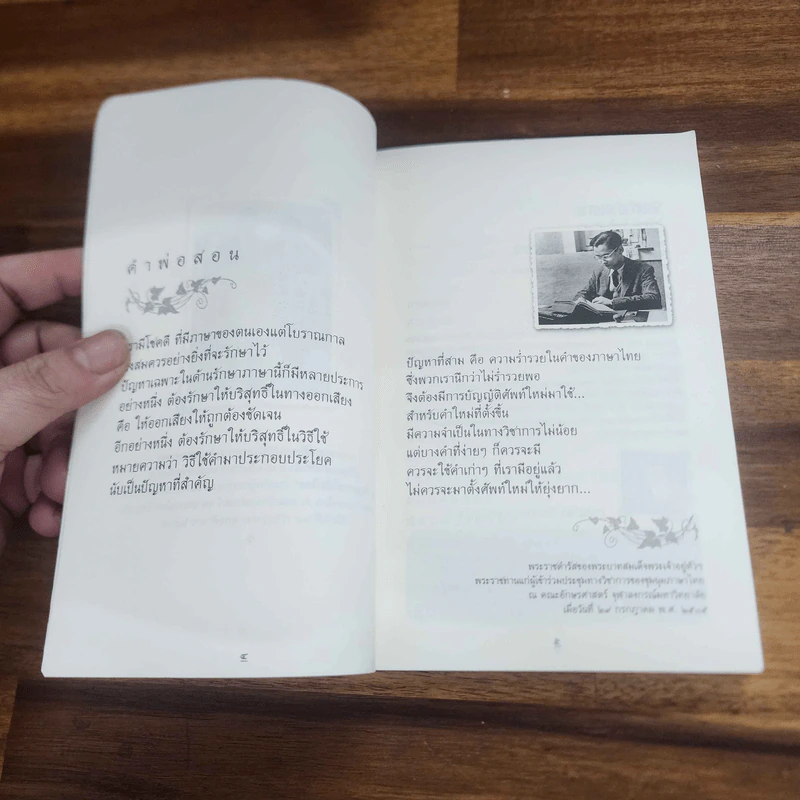 คำพ่อสอน
รามีโชคดี ที่มีภาษาของตนเองแต่โบราณกาล
งสมควรอย่างยิ่งที่จะรักษาไว้
ปัญหาเฉพาะในด้านรักษาภาษานี้ก็มีหลายประการ
อย่างหนึ่ง ต้องรักษาให้บริสุทธิ์ในทางออกเสียง
คือ ให้ออกเสียงให้ถูกต้องชัดเจน
อีกอย่างหนึ่ง ต้องรักษาให้บริสุทธิ์ในวิธีใช้
หมายความว่า วิธีใช้คำมาประกอบประโยค
นับเป็นปัญหาที่สำคัญ
๔
ปัญหาที่สาม คือ ความร่ำรวยในคำของภาษาไทย
ซึ่งพวกเรานึกว่าไม่ร่ำรวยพอ
จึงต้องมีการบัญญัติศัพท์ใหม่มาใช้...
สำหรับคำใหม่ที่ตั้งขึ้น
มีความจำเป็นในทางวิชาการไม่น้อย
แต่บางคำที่ง่ายๆ ก็ควรจะมี
ควรจะใช้คำเก่าๆ ที่เรามีอยู่แล้ว
ไม่ควรจะมาตั้งศัพท์ใหม่ให้ยุ่งยาก...
พระราชดำรัสของพระบาทสมเด็จพระเจ้าอยู่หัวฯ
พระราชทานแก่ผู้เข้าร่วมประชุมทางวิชาการของชุมนุมภาษาไทย
ณ คณะอักษรศาสตร์ จุฬาลงกรณ์มหาวิทยาลัย
เมื่อวันที่ ๒๙ กรกฎาคม พ.ศ. ๒๕๐๕